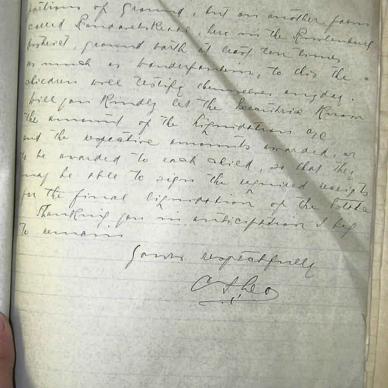 portions of Ground, but on another farm
called here in the Rustenburg
District, ground worth at least ten times
as much as to this the
children will testify themselves any day.
Will you Kindly let the Know
the amount of the liquidations
and the respective amounts awarded, or
to be awarded to each child, so that they
may be able to sign the required receipts
for the final liquidation of the Estate
Thanking you in anticipation I beg
to remain
Yours respectfully